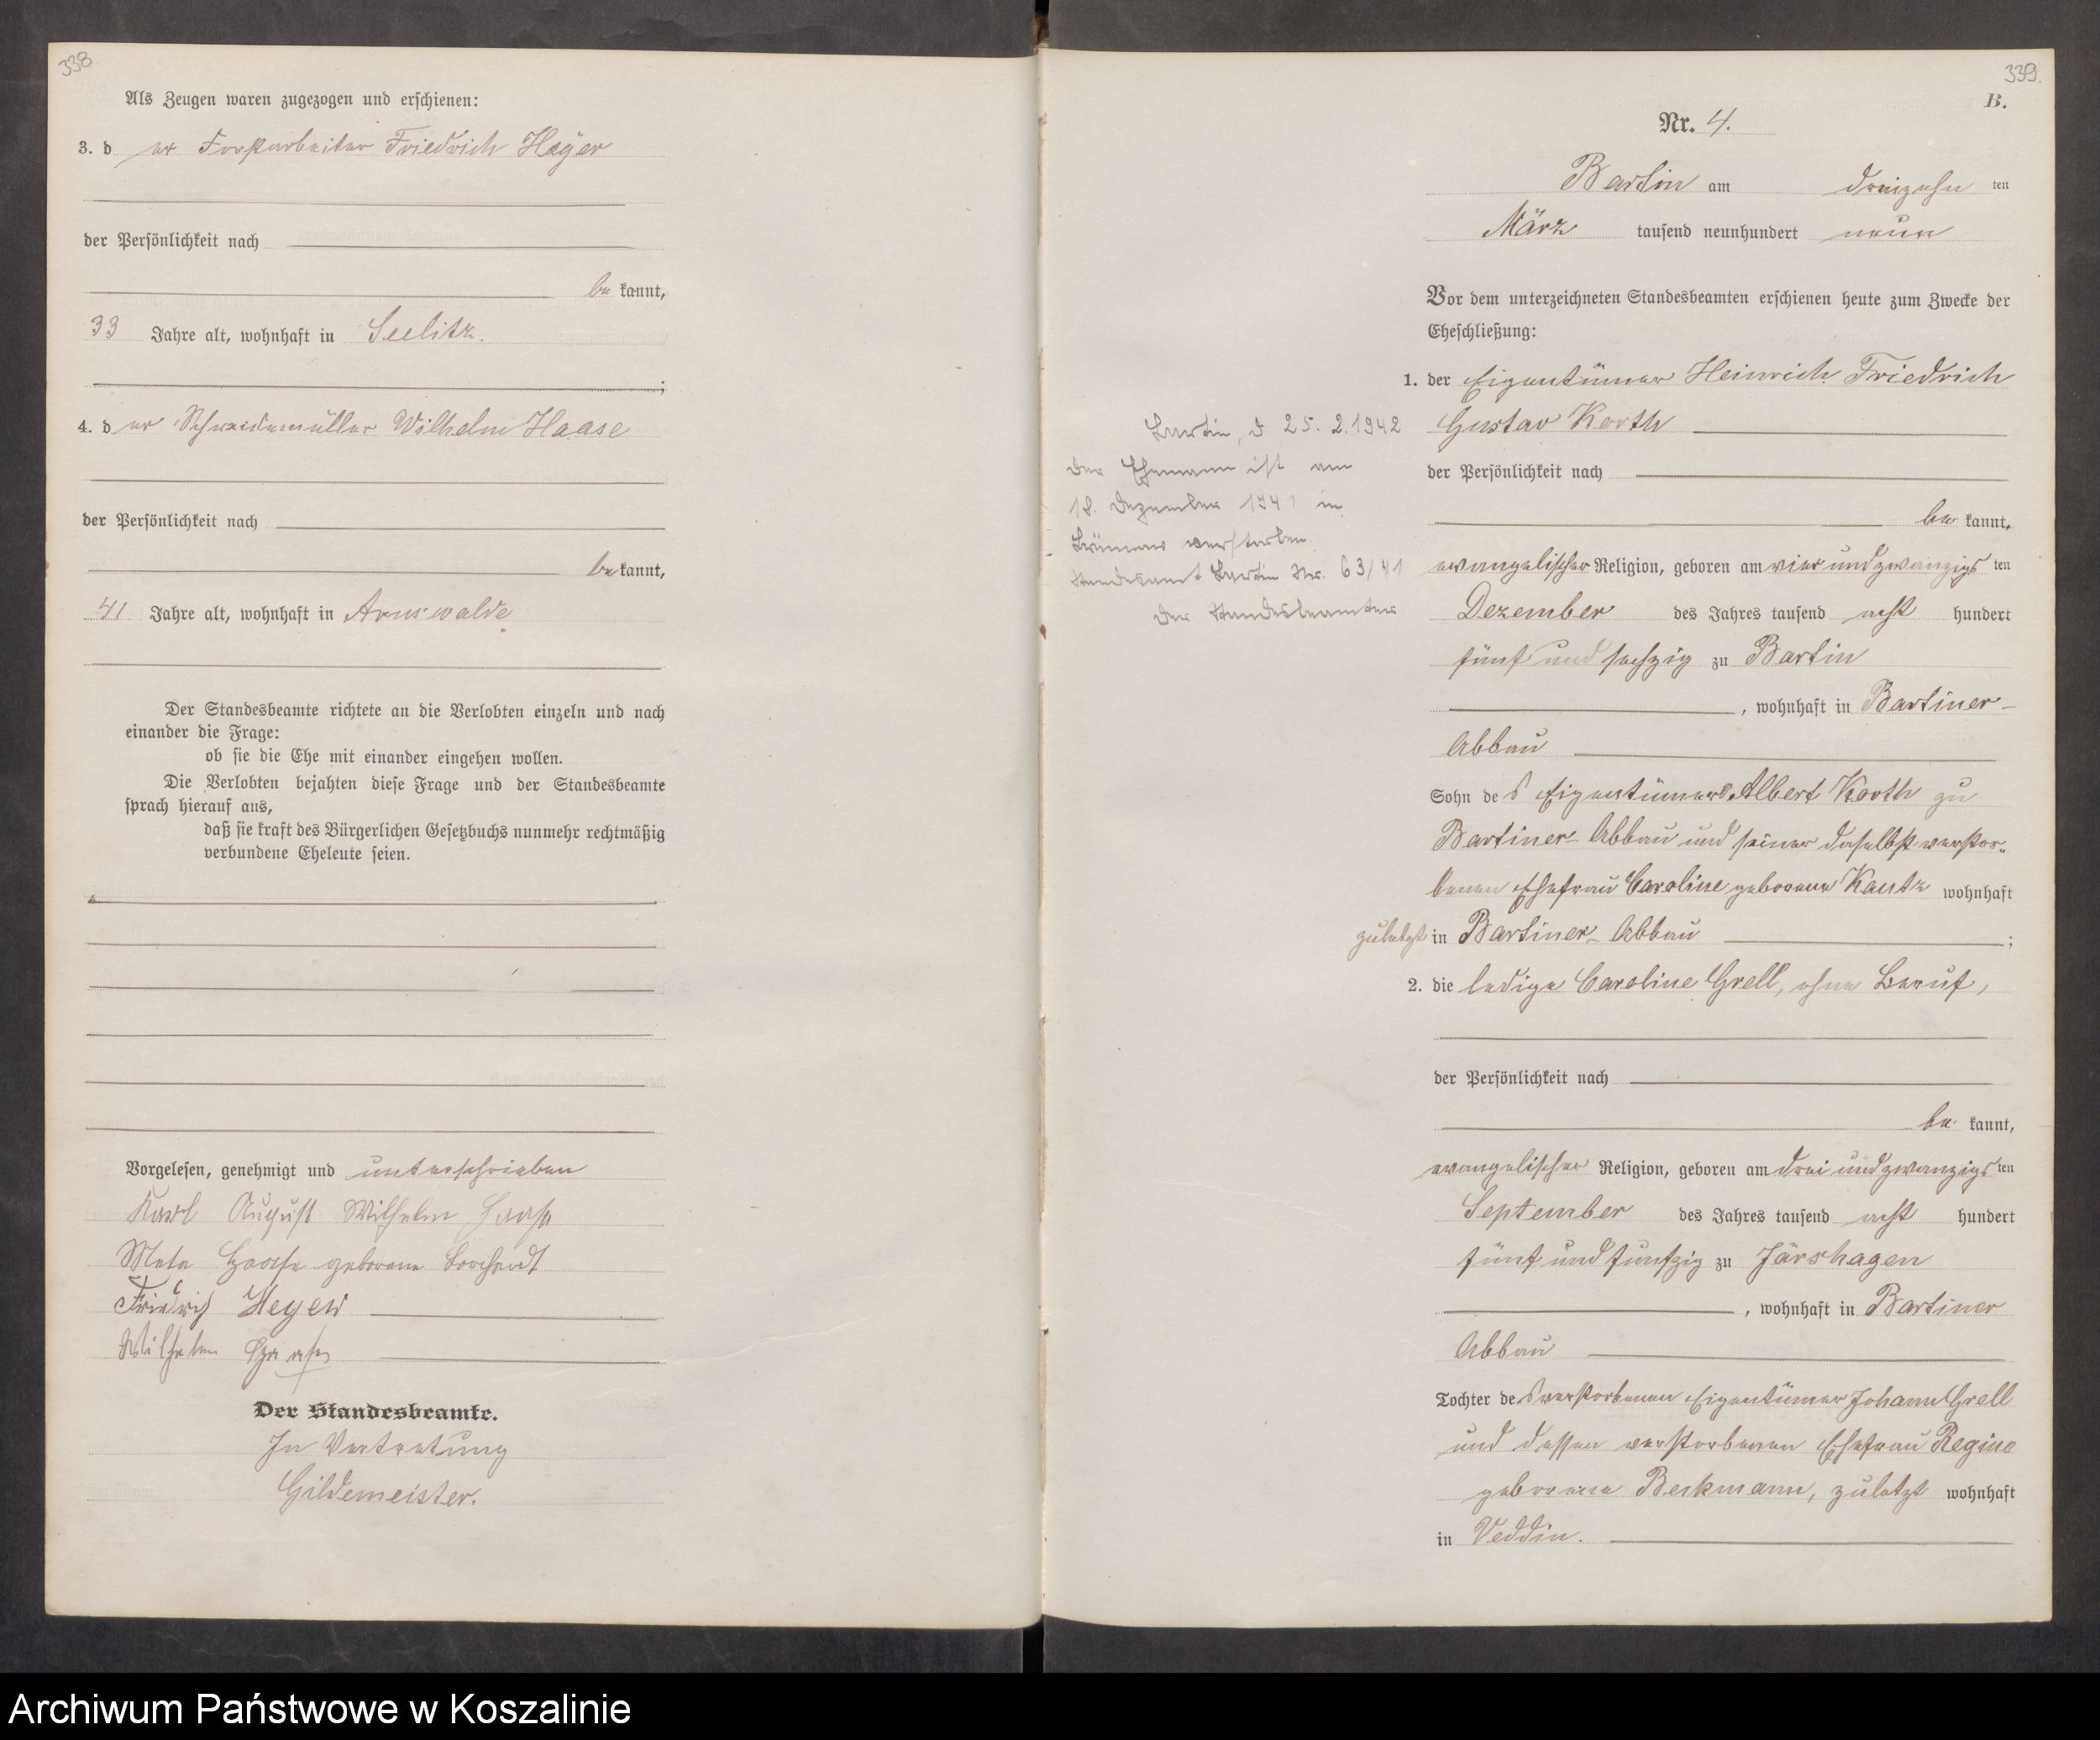 338
Als Zeugen waren zugezogen und erschienen:
3. d er Forstarbeiter Friedrich Heyer
der Persönlichkeit nach
be kannt,
33 Jahre alt, wohnhaft in Seelitz.
;
4. d er Schneidemüller Wilhelm Haase
der Persönlichkeit nach
be kannt,
41 Jahre alt, wohnhaft in Arnswalde
Der Standesbeamte richtete an die Verlobten einzeln und nach
einander die Frage:
ob sie die Ehe mit einander eingehen wollen.
Die Verlobten bejahten diese Frage und der Standesbeamte
sprach hierauf aus,
daß sie kraft des Bürgerlichen Gesetzbuchs nunmehr rechtmäßig
verbundene Eheleute seien.
Vorgelesen, genehmigt und unterschrieben
Karl August Wilhelm Haase
Meta Haase geborene Borchardt
Friedrich Heyer
Wilhelm Haase
Der Standesbeamte.
In Vertretung
Gildemeister.
339.
B.
Nr. 4.
Bartin am dreizehn ten
März tausend neunhundert neun
Vor dem unterzeichneten Standesbeamten erschienen heute zum Zwecke der
Eheschließung:
1. der Eigentümer Heinrich Friedrich
Gustav Korth
der Persönlichkeit nach
be kannt,
evangelischer Religion, geboren am vier und zwanzigs ten
Dezember des Jahres tausend acht hundert
fünf und sechzig zu Bartin
, wohnhaft in Bartiner-
Abbau
Sohn de s Eigentümers Albert Korth zu
Bartiner-Abbau und seiner daselbst verstor-
benen Ehefrau Caroline geborene Kautz wohnhaft
zuletzt in Bartiner-Abbau ;
2. die ledige Caroline Grell, ohne Beruf,
der Persönlichkeit nach
be kannt,
evangelischer Religion, geboren am drei und zwanzigs ten
September des Jahres tausend acht hundert
fünf und funfzig zu Järshagen
, wohnhaft in Bartiner
Abbau
Tochter de s verstorbenen Eigentümer Johann Grell
und dessen verstorbenen Ehefrau Regine
geborene Beckmann, zuletzt wohnhaft
in Veddin.
Bartin, d. 25. 2. 1942
Der Ehemann ist am
18. Dezember 1941 in
verstorben.
Standesamt Bartin Nr. 63/41
Der Standesbeamte
Archiwum Państwowe w Koszalinie